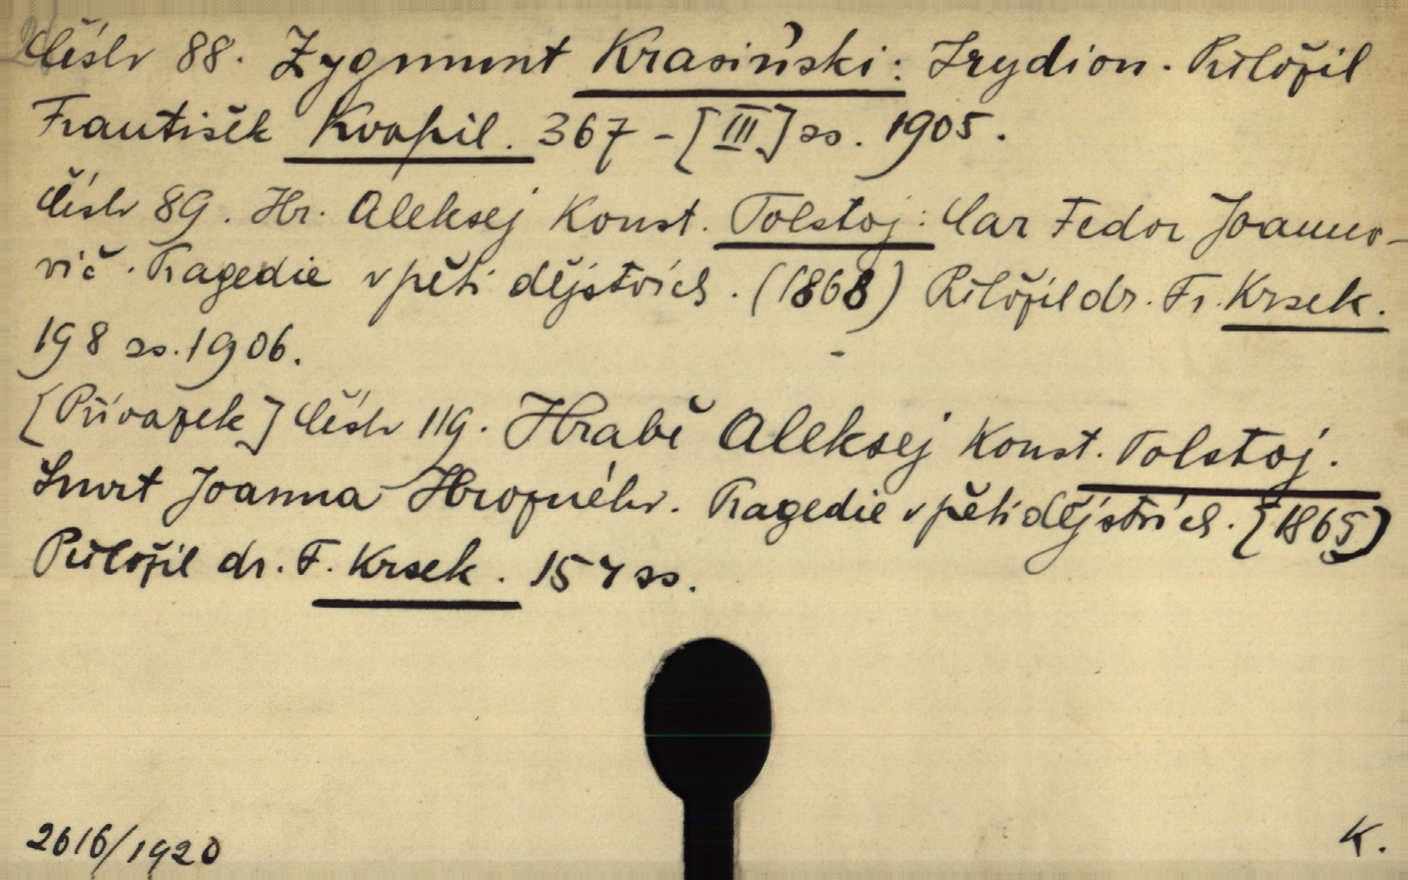 Číslo 88. Zygmunt Krasiński: Irydion. Přeložil
František Kvapil. 367-[III] ss. 1905.
Číslo 89. Hr. Aleksej Konst. Tolstoj: Car Fedor Joanno-
vič. Tragedie v pěti dějstvích. (1868) Přeložil dr. Fr. Krsek.
198 ss. 1906.
[Přívazek] Číslo 119. Hrabě Aleksej Konst. Tolstoj.
Smrt Joanna Hrozného. Tragedie v pěti dějstvích. [1865]
Přeložil dr. F. Krsek. 157 ss.
2616/1920
K.